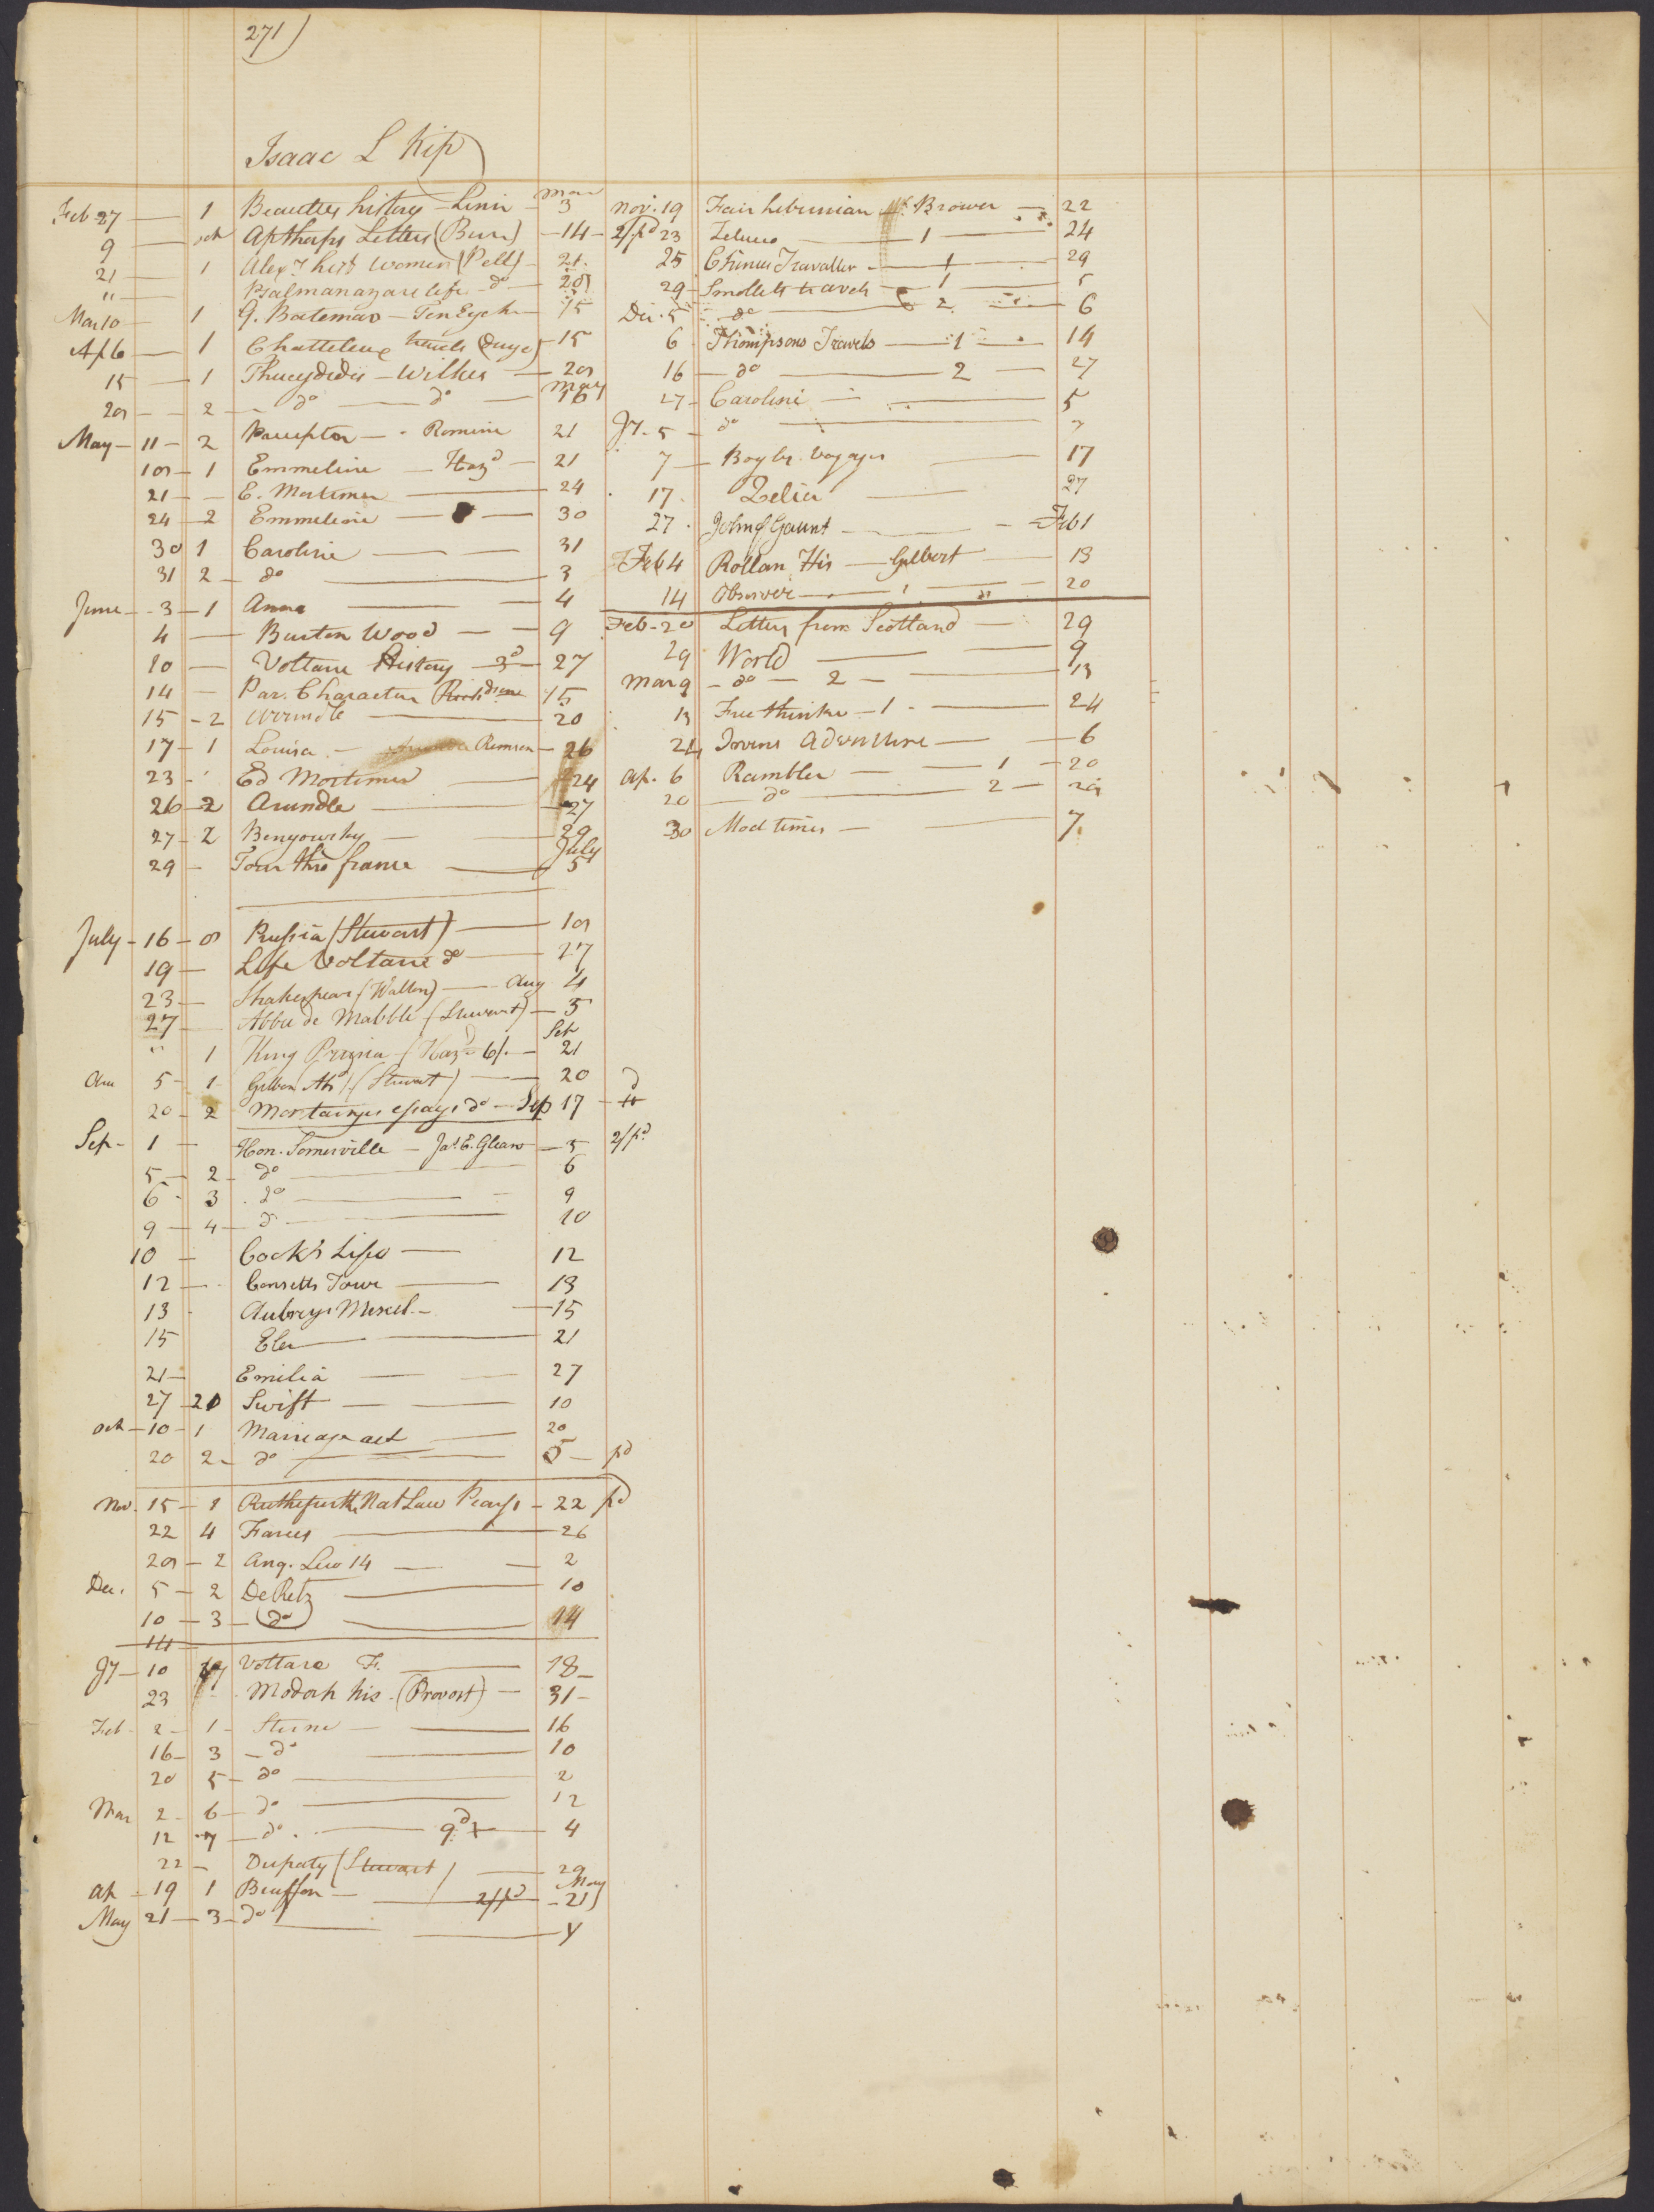 271)
Isaac L Kip
Feb 27 — 1 Beauties history — Linn — Mar 3
9 — oct Apthorps Letters (Burr) — 14 —
21 — 1 Alex.r hist Women (Pell) — 21.
" — Psalmanazars life — do — 28
Mar 10 — 1 G. Bateman — Ten Eyck — 15
Ap 6 — 1 Chatteleux travels (Duyc) — 15
15 — 1 Thucydides — Wilkes — 20
20 — 2 — do — do — May 16
May — 11 — 2 — Romine 21
10 — 1 Emmeline — Hazd — 21
21 — — E. Mortimer — 24
24 — 2 Emmeline — 30
30 1 Caroline — — 31
31 2 — do — 3
June — 3 — 1 Anna — 4
4 — Burton Wood — — 9
10 — Voltaire History — 3d — 27
14 — Par. Character 15
15 — 2 Arundle — 20
17 — 1 Louisa — Remsen — 26
23 — Ed Mortimer — 24
26 — 2 Arundle — 27
27 — 2 Benyowsky — 29
29 — Tour thro france — July 5
July — 16 — 8 Russia (Stewart) — 19
19 — Life Voltaire do — 27
23 — Shakespear (Walton) — Aug 4
27 — Abbe de Mabble (Stewart) — 5
" 1 King Prussia (Hazd 6/. — Sep 21
Au 5 — 1 Gibbon Abd (Stewart) — 20
20 — 2 Montaignes essays do — Sep 17 —
Sep — 1 — Hon. Somerville — Jas E. Glean — 5 2/pd
5 — 2 — do — 6
6 — 3 . do — 9
9 — 4 — do — 10
10 — Cook's Life — 12
12 — Consetts Tour — 13
13 . Aubreys Miscel. — 15
15 Ela — 21
21 — Emilia — 27
27 — 20 Swift — 10
Oct — 10 — 1 Marriage act — 20
20 2 — do — 5 — pd
Nov. 15 — 1 Rutherfurth Nat Law Pearss — 22 pd
22 4 Faries — 26
20 — 2 Ang. Lew 14 — 2
Dec. 5 — 2 De Retz — 10
10 — 3 — do — 14
14
Jy — 10 Voltare F. — 18 —
23 Modark his. (Provost) — 31 —
Feb — 2 — 1 — Sterne — 16
16 — 3 — do — 10
20 5 — do — 2
Mar 2 — 6 — do — 12
12 . 7 — do . — 9d + — 4
22 — Dupaty (Stewart) — 29
Ap — 19 1 Buffon — 2/pd — May 21
May 21 — 3 — do — y
Nov. 19 Fair hibernian Brower — 22
2/pd 23 Zeluco — 1 — 24
25 Chinese Travaller — 1 — 29
29 — Smolletts travels — 1 — 5
Dec. 5 — do — 2 — 6
6 Thompsons Travels — 1 — 14
16 — do — 2 — 27
27 — Caroline — 5
Jy. 5 — do — 7
7 — Bogles Voyages — 17
17. Zelia — 27
27 . John of Gaunt — — Feb 1
Feb 4 Rollan His — Gilbert — 13
14 Observer — 1 — 20
Feb — 20 Letters from Scotland — 29
29 World — 9
Mar 9 — do — 2 — 13
13 Free thinker — 1 — 24
24 Irvins Adventure — 6
Ap. 6 Rambler — 1 — 20
20 — do — 2 — 29
30 Mod times — 7.